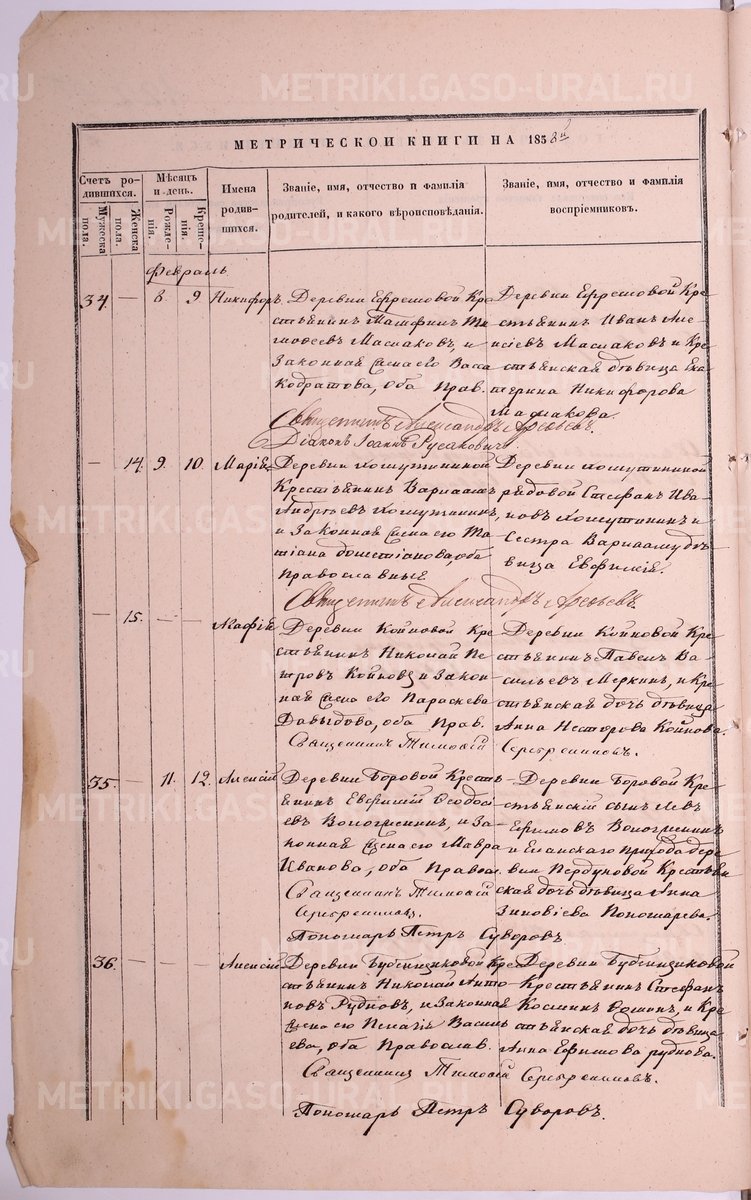 METRIKI.GASO-URAL.RU
МЕТРИЧЕСКОЙ КНИГИ НА 1858й
Счетъ родившихся.
Мужеска пола.
Женска пола.
Мѣсяцъ и день.
Рожденія.
Крещенія.
Имена родившихся.
Званіе, имя, отчество и фамилія родителей, и какого вѣроисповѣданія.
Званіе, имя, отчество и фамилія воспріемниковъ.
Февраль
34. — 8. 9. Никифоръ
Деревни Ефремовой Кре
стьянинъ
Маслаковъ, и
Законная Жена его Васса
Кодратова, оба Прав.
Деревни Ефремовой Кре
стьянинъ Иванъ Але
ксіевъ Маслаковъ и Кре
стьянская дѣвица Ека
терина Никифорова
Маслакова.
Священникъ Александръ
Діаконъ Іоаннъ Русановичъ
— 14. 9. 10. Марія
Деревни
Крестьянинъ Варлаамъ
Андреевъ
и Законная Жена его Та
тіана оба
Православные
Деревни
рядовой Стефанъ Ива
новъ и
Сестра Варлаама дѣ
вица Евфимія.
Священникъ Александръ
— 15. — — Агафія
Деревни Койновой Кре
стьянинъ Николай Пе
тровъ Койновъ и Закон
ная Жена его Параскева
Давыдова, оба Прав.
Деревни Койновой Кре
стьянинъ Павелъ Ва
сильевъ Меркинъ, и Кре
стьянская дочь дѣвица
Анна Несторова Койнова.
Священникъ Тимофій Серебренниковъ.
35. — 11. 12. Алексій
Деревни Боровой Кресть
янинъ Евфимій Ѳеодосі
евъ Вологжанинъ, и За
конная Жена его Мавра
Иванова, оба Правосл.
Деревни Боровой Кре
стьянскій сынъ Левъ
Ефимовъ Вологжанинъ
и Еланскаго Прихода дере
вни Крестьян
ская дочь дѣвица Анна
Зиновіева Пономарева.
Священникъ Тимофій
Серебренниковъ.
Пономарь Петръ Суворовъ
36. — — — Алексій
Деревни Бубенщиковой Кре
стьянинъ Николай Анто
новъ Рудновъ, и Законная
Жена его Пелагія Василь
ева, оба Православ.
Деревни Бубенщиковой
Крестьянинъ Стефанъ
Косминъ и Кре
стьянская дочь дѣвица
Анна Ефимова Руднова.
Священникъ Тимофій Серебренниковъ.
Пономарь Петръ Суворовъ.